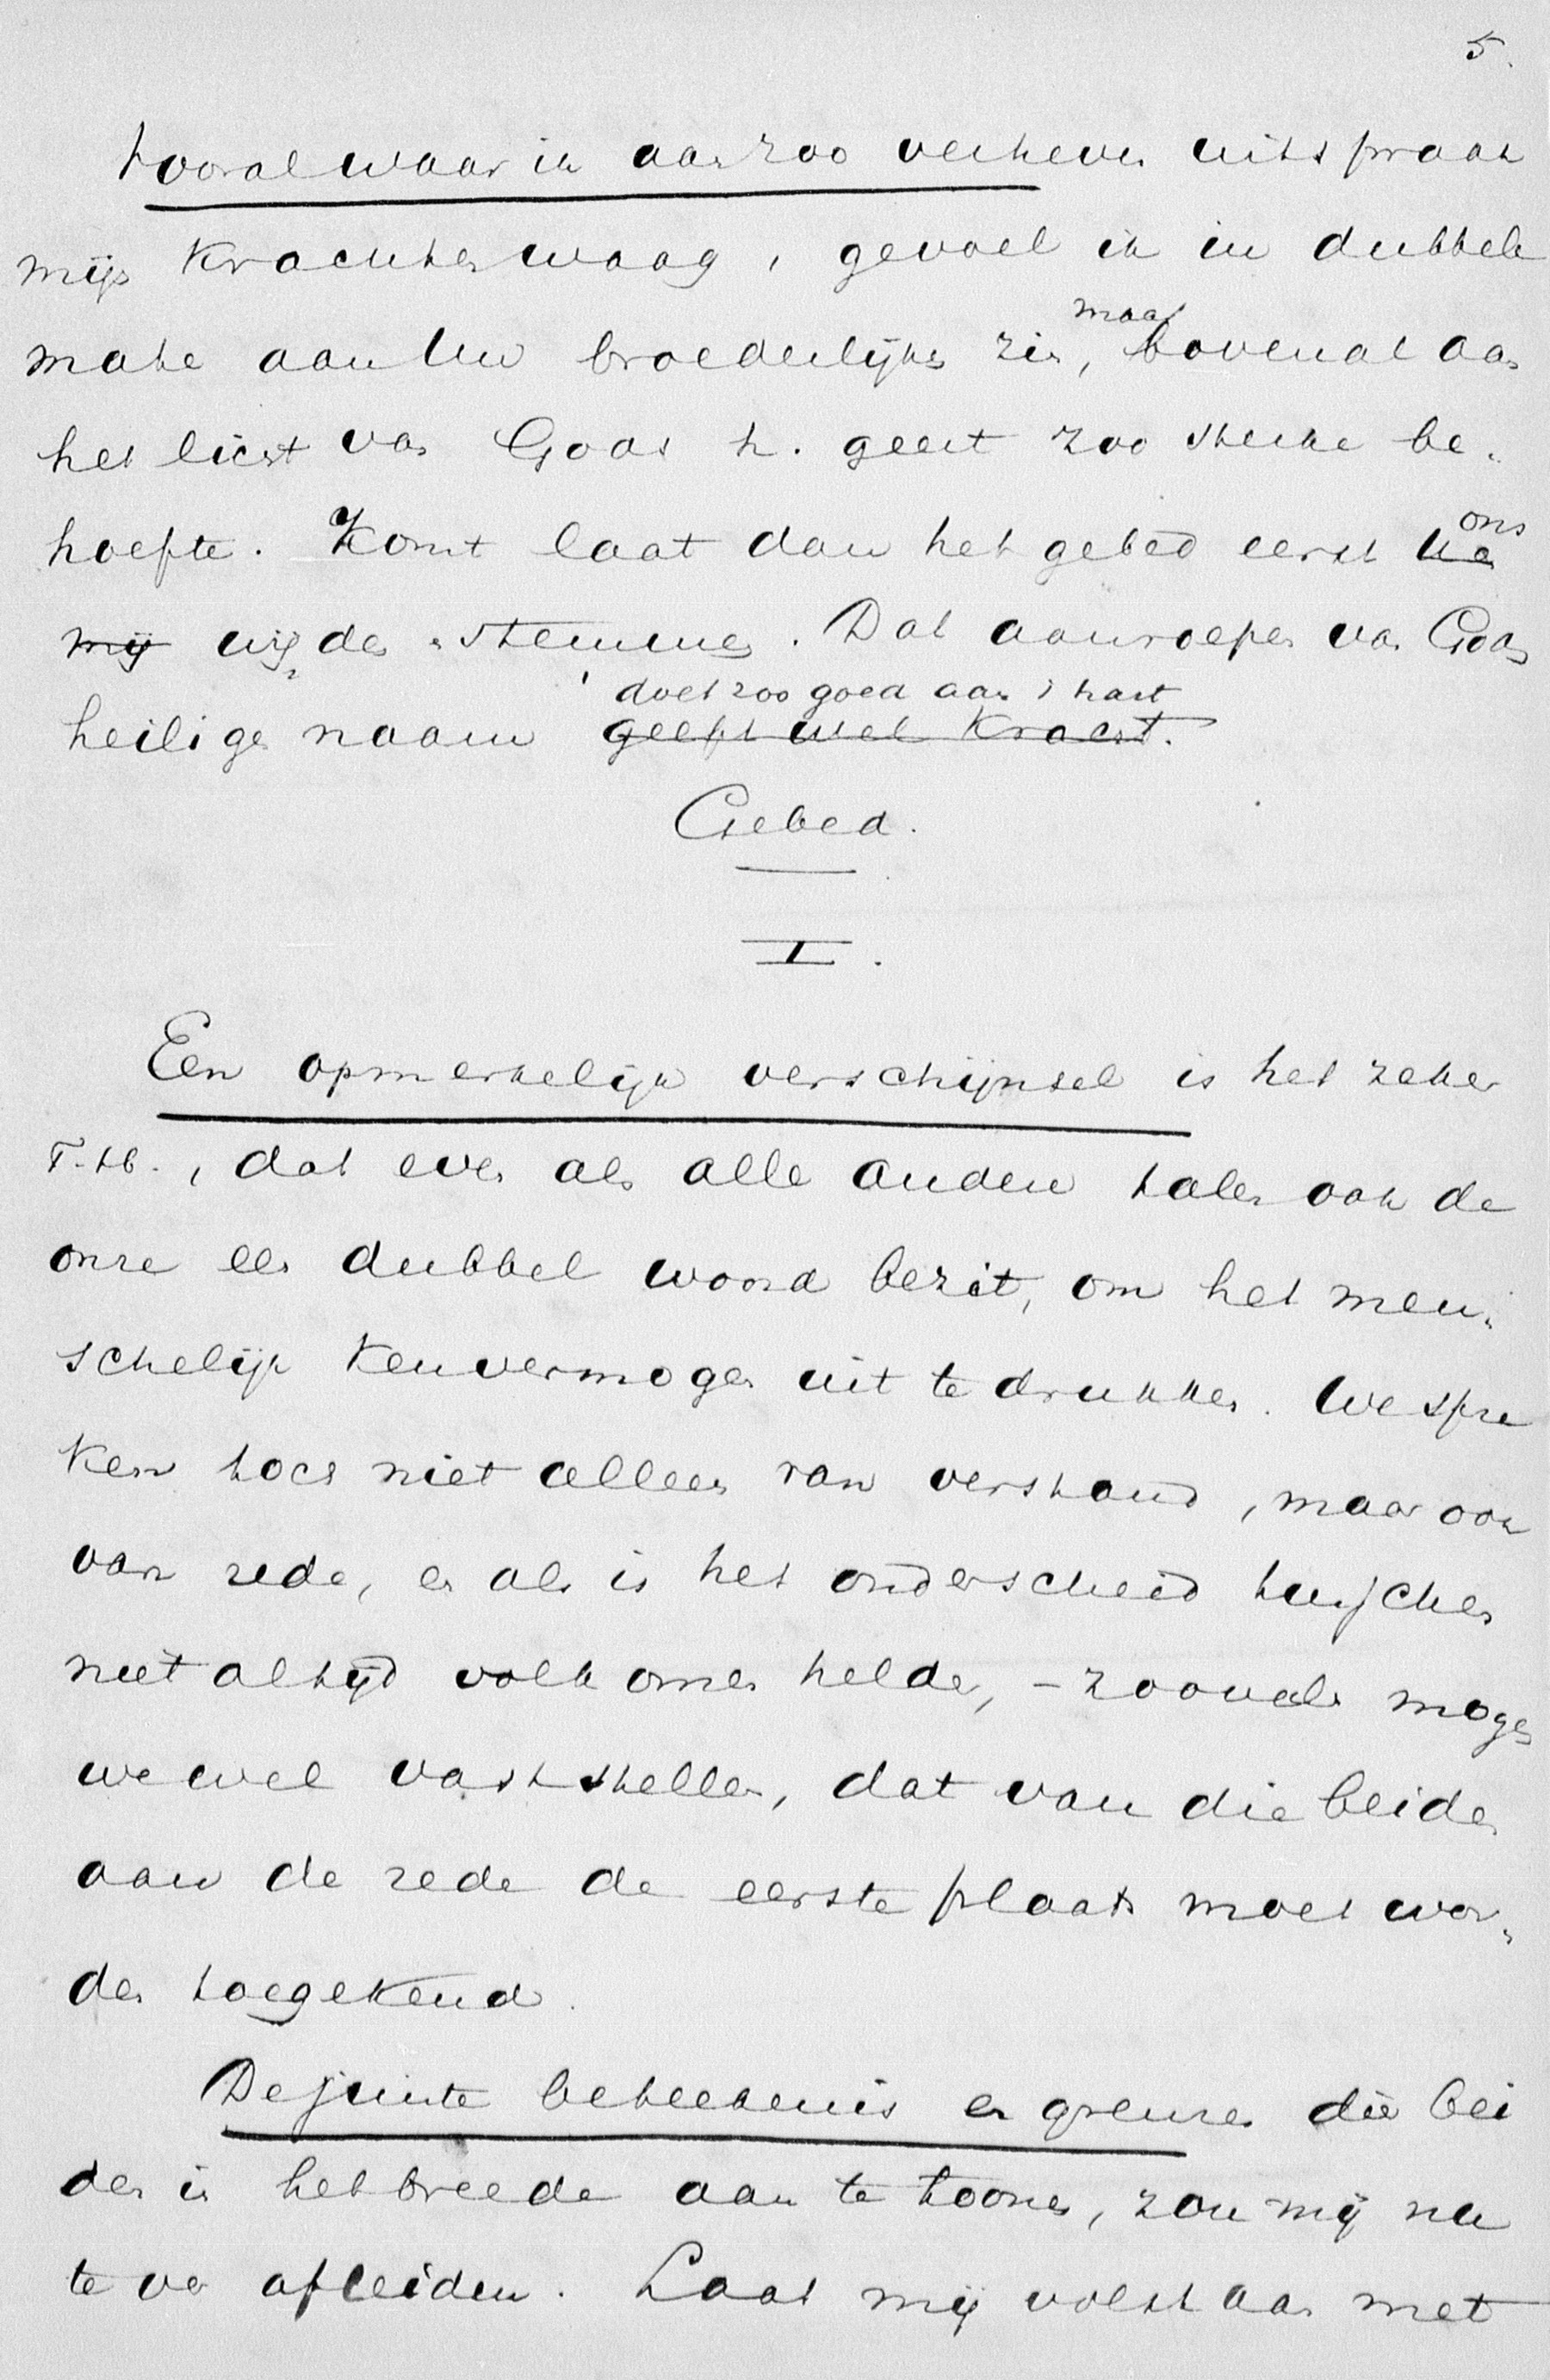 5.
Vooral waar ik aan zoo verheven uitspraak
mijn krachten waag, gevoel ik in dubbele
mate aan Uw broederlijken zin, maar bovenal aan
het licht van Gods h. geest zoo sterke be-
hoefte. Komt laat dan het gebed eerst ons
mij wijden stemmen. Dat aanroepen van Gods
heiligen naam doet zoo goed aan 't hart
geeft wel kracht.
Gebed.
I.
Een opmerkelijk verschijnsel is het zeker
T. H., dat even als alle andere talen ook de
onze een dubbel woord bezit, om het men-
schelijk kenvermogen uit te drukken. We spre
ken toch niet alleen van verstand, maar ook
van rede, en al is het onderscheid tusschen
niet altijd volkomen helder, - zooveel mogen
we wel vaststellen, dat van die beiden
aan de rede de eerste plaats moet wor-
den toegekend.
De juiste beteekenis en grenzen dier bei
den in het breede aan te toonen, zou mij nu
te ver afleiden. Laat mij volstaan met